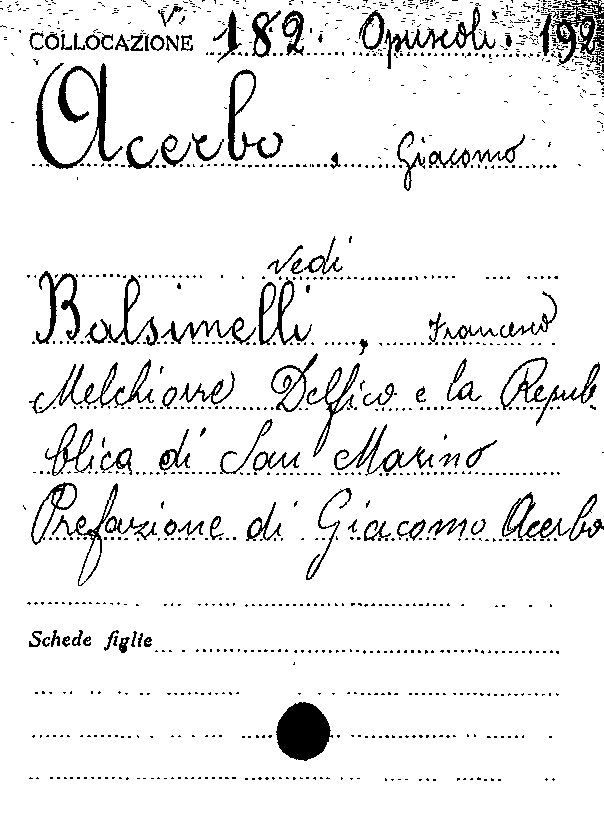 V.
COLLOCAZIONE 182. Opuscoli. 192
Acerbo, Giacomo
Vedi
Balsimelli, Francesco
Melchiorre Delfico e la Repub
blica di San Marino
Prefazione di Giacomo Acerbo
Schede figlie